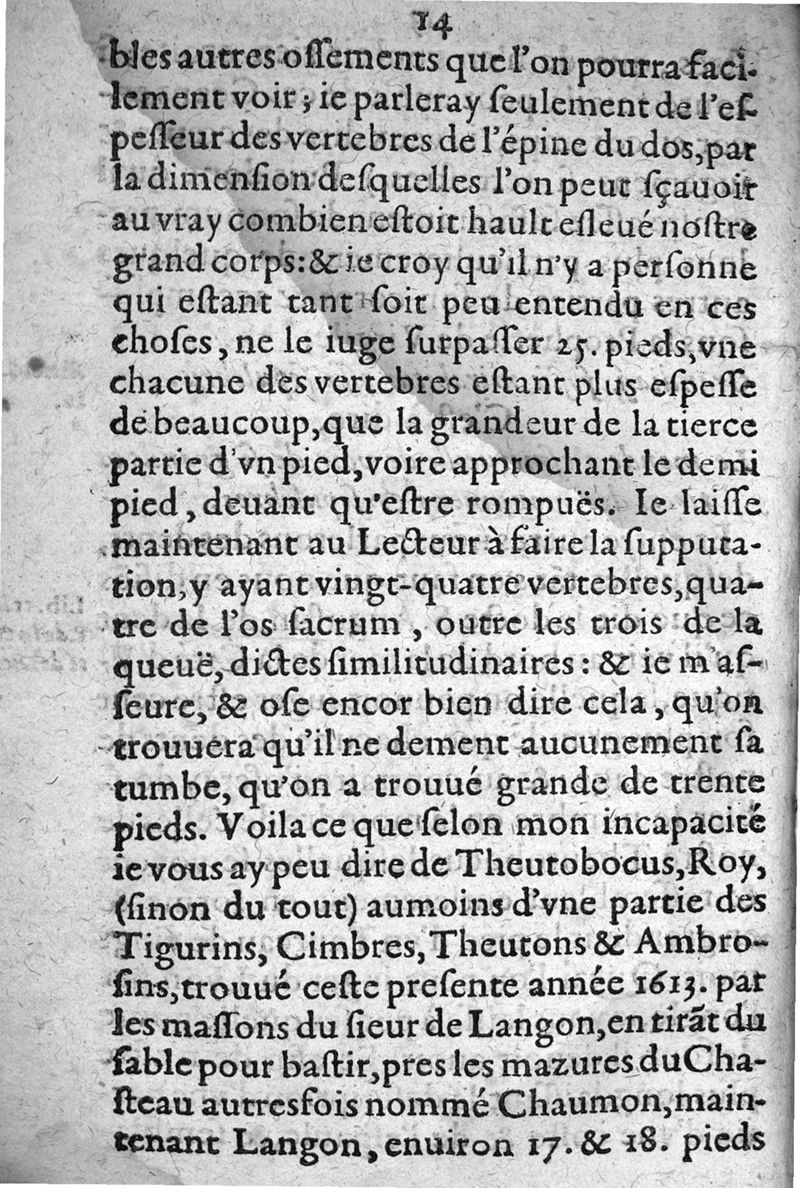 14
bles autres oſſements que l'on pourra faci-
lement voir ; ie parleray ſeulement de l'eſ-
peſſeur des vertebres de l'épine du dos, par
la dimenſion deſquelles l'on peut ſçauoir
au vray combien eſtoit hault eſleué noſtre
grand corps: & ie croy qu'il n'y a perſonne
qui eſtant tant ſoit peu entendu en ces
choſes, ne le iuge ſurpaſſer 25. pieds, vne
chacune des vertebres eſtant plus eſpeſſe
de beaucoup, que la grandeur de la tierce
partie d'vn pied, voire approchant le demi
pied, deuant qu'eſtre rompuës. Ie laiſſe
maintenant au Lecteur à faire la ſupputa-
tion, y ayant vingt-quatre vertebres, qua-
tre de l'os ſacrum, outre les trois de la
queuë, dictes ſimilitudinaires: & ie m'aſ-
ſeure, & oſe encor bien dire cela, qu'on
trouuera qu'il ne dement aucunement ſa
tumbe, qu'on a trouué grande de trente
pieds. Voila ce que ſelon mon incapacité
ie vous ay peu dire de Theutobocus, Roy,
(ſinon du tout) aumoins d'vne partie des
Tigurins, Cimbres, Theutons & Ambro-
ſins, trouué ceſte preſente année 1613. par
les maſſons du ſieur de Langon, en tirãt du
ſable pour baſtir, pres les mazures du Cha-
ſteau autresfois nommé Chaumon, main-
tenant Langon, enuiron 17. & 18. pieds